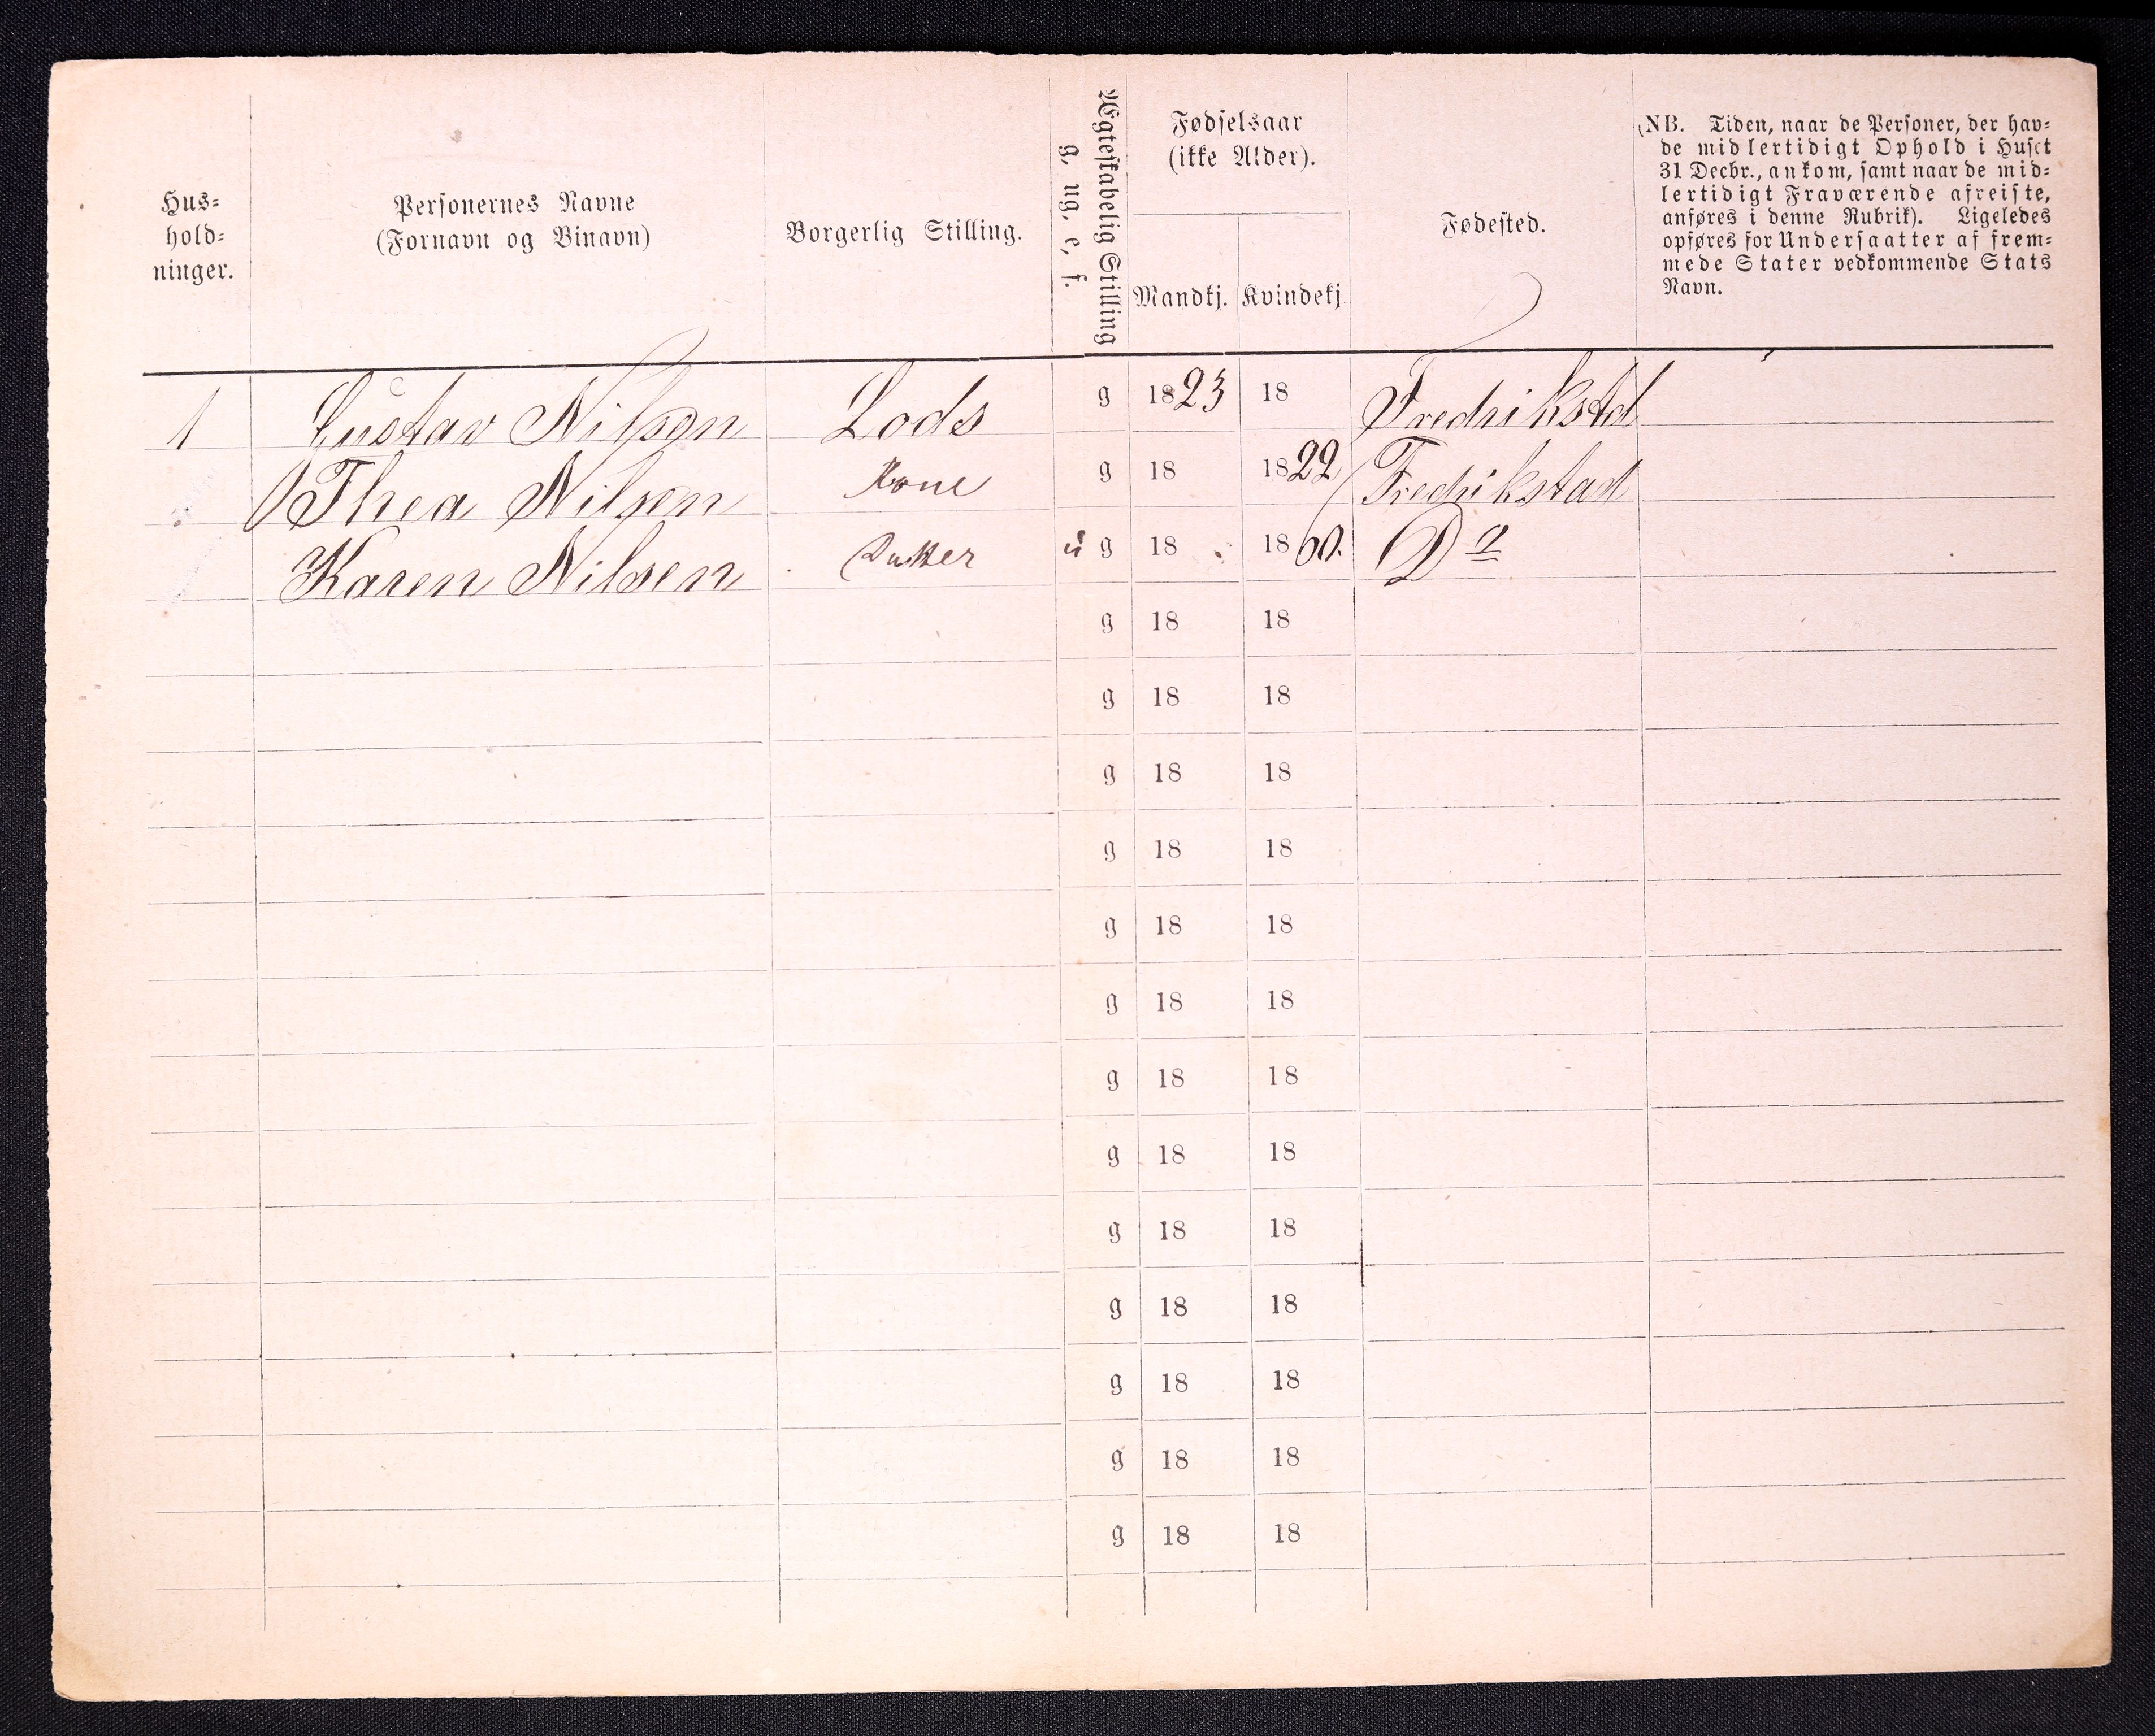 Hus-
hold-
ninger.
Personernes Navne
(Fornavn og Binavn)
Borgerlig Stilling.
Ægteskabelig Stilling
g, ug, e, f.
Fødselsaar
(ikke Alder).
Mandkj. Kvindekj.
Fødested.
NB. Tiden, naar de Personer, der hav-
de midlertidigt Ophold i Huset
31 Decbr., ankom, samt naar de mid-
lertidigt Fraværende afreiste,
anføres i denne Rubrik). Ligeledes
opføres for Undersaatter af frem-
mede Stater vedkommende Stats
Navn.
1 Gustav Nilsen Lods g 1823 18 Fredrikstd
Thea Nilsen Kone g 18 1822 Fredrikstad
Karen Nilsen Datter u g 18 1860. Do
g 18 18
g 18 18
g 18 18
g 18 18
g 18 18
g 18 18
g 18 18
g 18 18
g 18 18
g 18 18
g 18 18
g 18 18
g 18 18